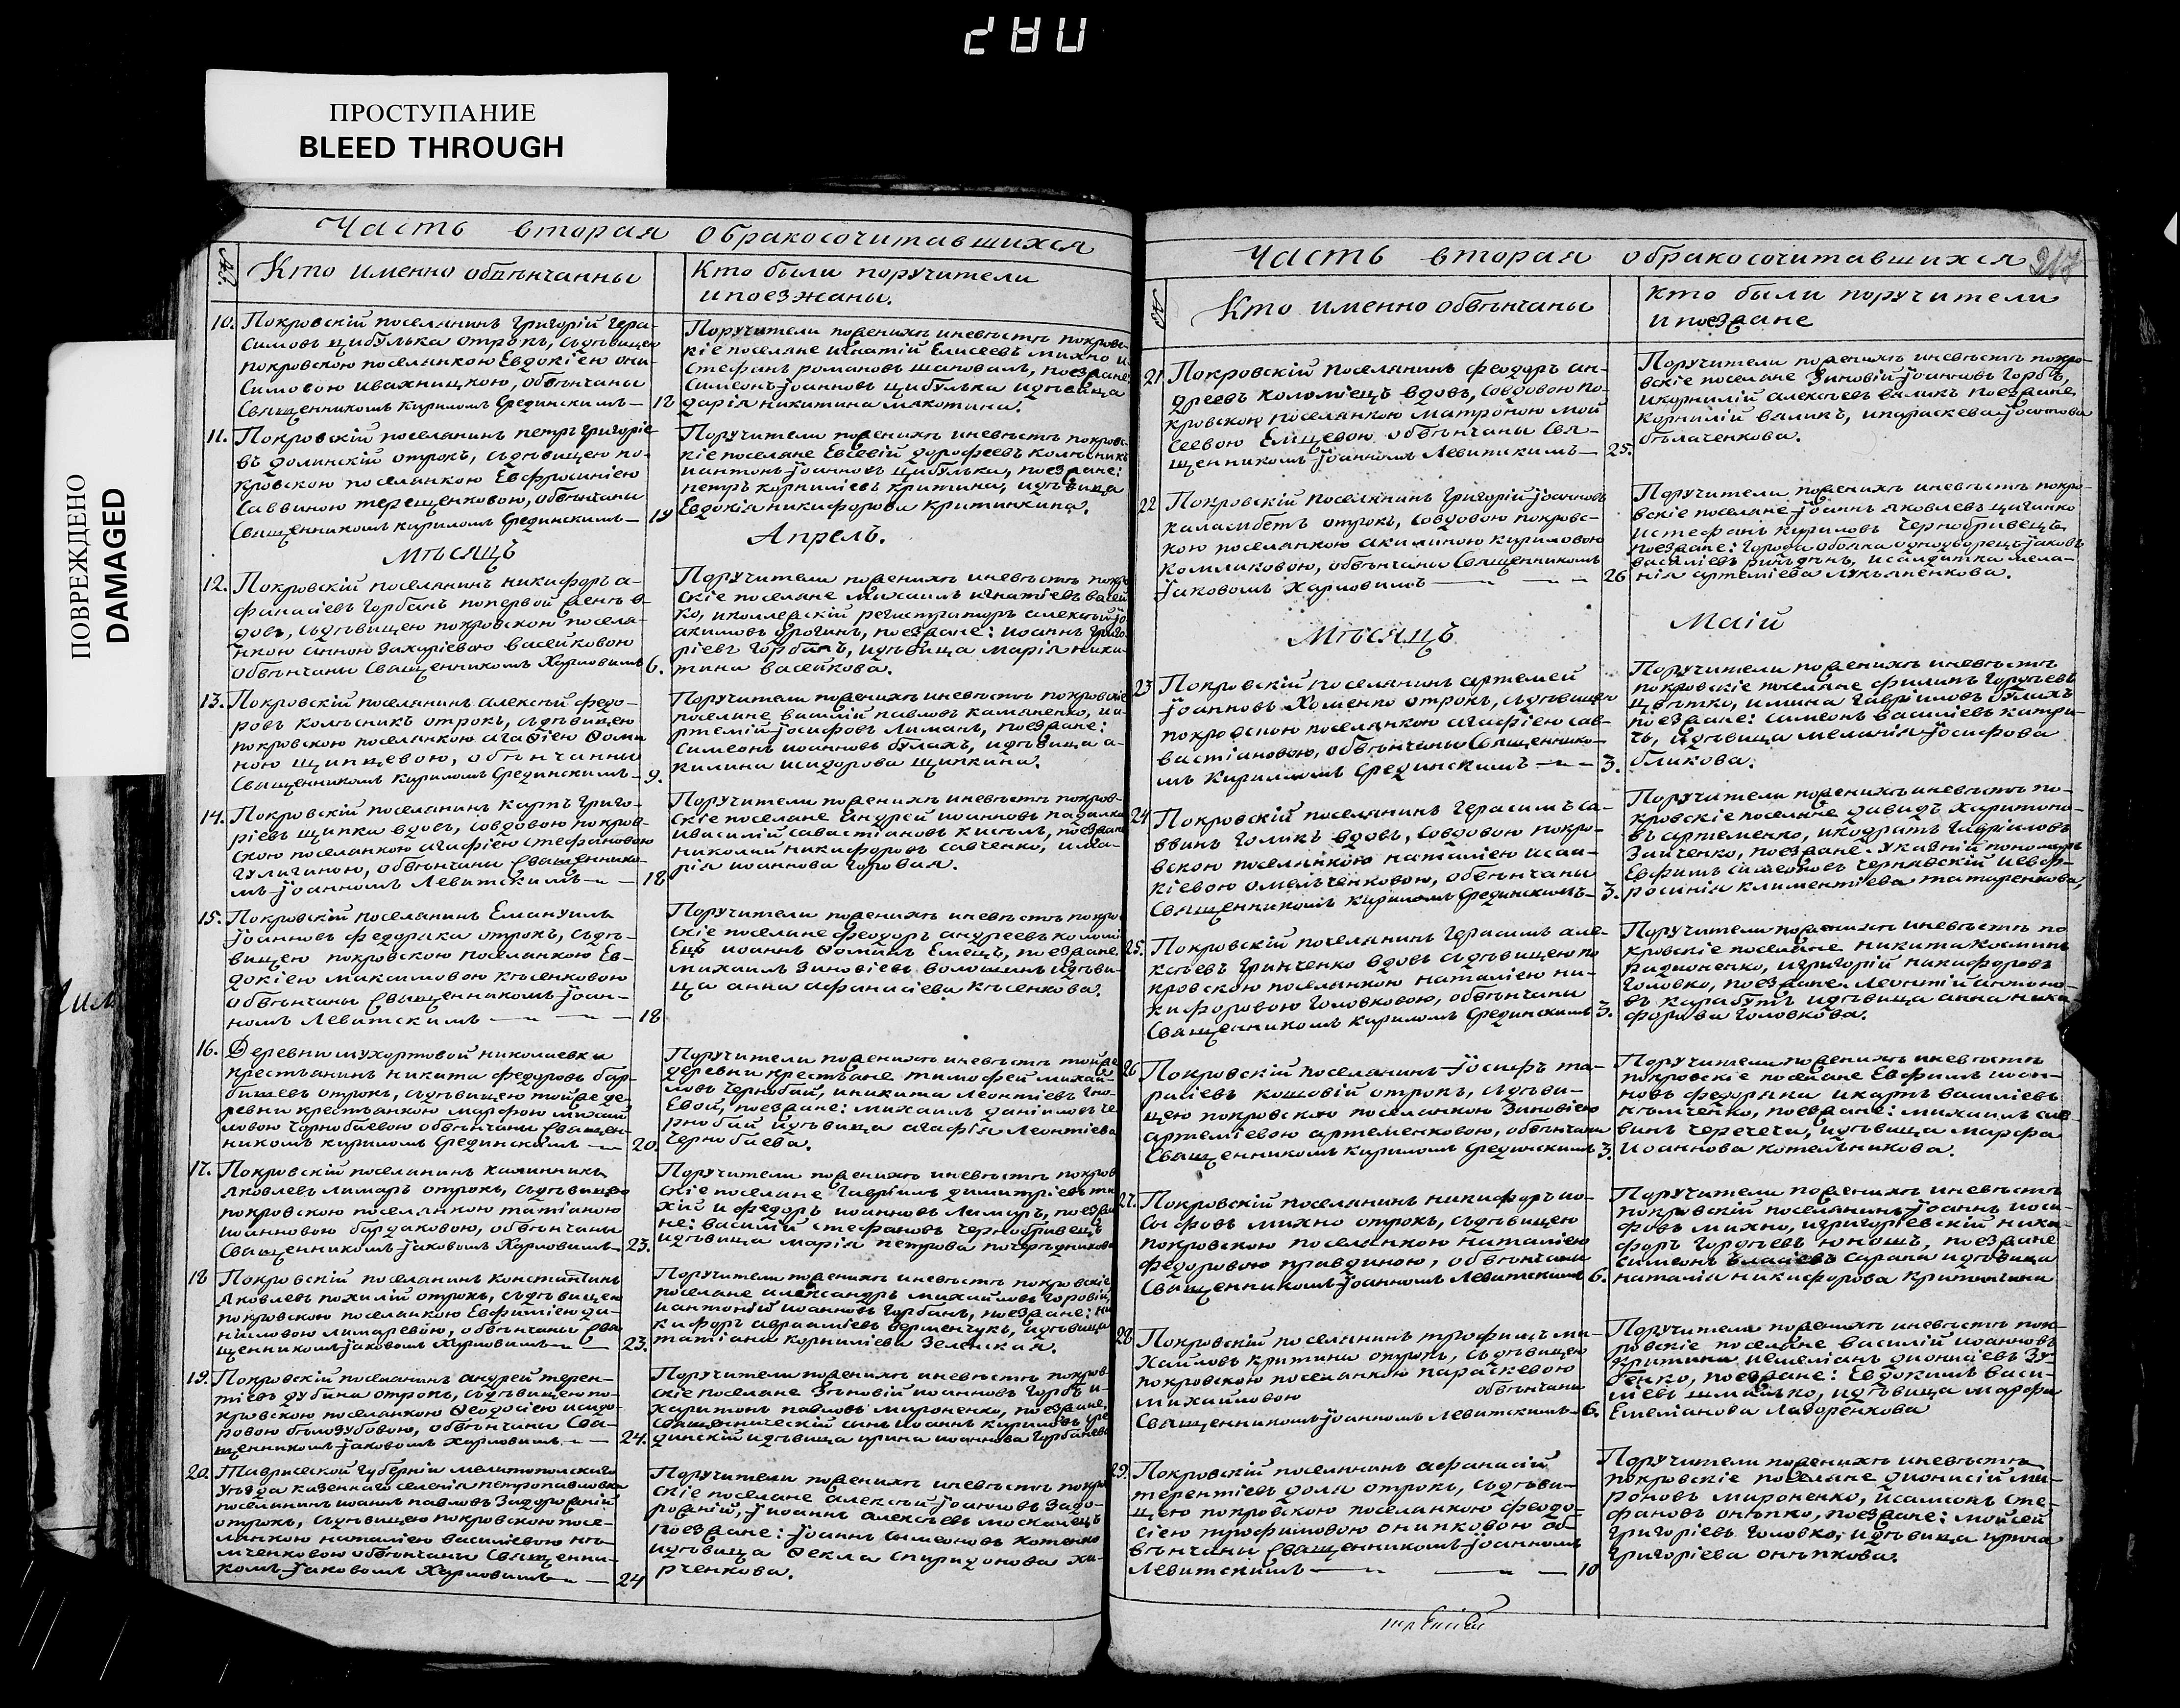 280
ПРОСТУПАНИЕ
BLEED THROUGH
ПОВРЕЖДЕНО
DAMAGED
Часть вторая обракосочитавшихся
№:
Кто именно обвѣнчанны
Кто были поручители
ипоезжаны.
10. Покровскій поселянинъ григорій гера-
симовъ цибулька отрокъ, съдѣвицею
покровскою поселянкою Евдокіею они-
симовою ивахницкою, обвѣнчаны
Священникомъ кириломъ Срединскимъ— 12
Поручители поженихѣ иневѣстѣ покровс-
кіе поселяне игнатій Елисеевъ михно и
Стефанъ романовъ шаповалъ, поезжане
Симеонъ іоанновъ цибулька идѣвица
дарія никитина макотина.
11. Покровскій поселянинъ петръ григоріе-
въ долинскій отрокъ, съдѣвицею по-
кровскою поселянкою Евфросиніею
Саввиною терещенковою, обвѣнчаны
Священникомъ кириломъ Срединскимъ— 19
Поручители поженихѣ иневѣстѣ покровс-
кіе поселяне Евсевій дорофеевъ колѣсникъ
иантонъ іоанновъ цибулька, поезжане:
петръ корниліевъ критина, идѣвица
Евдокія никифорова критинкина.
Мѣсяцъ
Апрель.
12. Покровскій поселянинъ никифоръ а-
фанасіевъ горбань попервой женѣ в-
довъ, съдѣвицею покровскою поселя-
нкою анною захаріевою васейковою
обвѣнчаны Священникомъ Харловымъ 6.
Поручители поженихѣ иневѣстѣ покров-
скіе поселяне михаилъ игнатіевъ васей-
ко, иколлежскій регистраторъ алексѣй іо-
акимовъ ерогинъ, поезжане: иоаннъ григо-
ріевъ горбань, идѣвица марія ники-
тина васейкова.
13. Покровскій поселянинъ алексѣй федо-
ровъ колѣсникъ отрокъ, съдѣвицею
покровскою поселянкою агафіею Ѳоми-
ною щипцевою, обвѣнчанны
Священникомъ кириломъ Срединскимъ— 9.
Поручители поженихѣ иневѣстѣ покровскіе
поселяне василій павловъ каманенко, иа-
ртемій іосифовъ лиманъ, поезжане:
Симеонъ иоанновъ булахъ, идѣвица а-
килина исидорова щипкина.
14. Покровскій поселянинъ карпъ григо-
ріевъ щипка вдовъ, совдовою покров-
скою поселянкою агафіею стефановою
гулигиною, обвѣнчаны Священнико-
мъ іоанномъ Левитскимъ— 18
Поручители поженихѣ иневѣстѣ покров-
скіе поселяне андрей иоанновъ падалка
ивасилій савастіановъ кисѣль, поезжане
николай никифоровъ савченко, има-
рія иоаннова горовая.
15. Покровскій поселянинъ Емануилъ
іоанновъ федоряка отрокъ, съдѣ-
вицею покровскою поселянкою Ев-
докіею максимовою кѣсенковою
обвѣнчаны Священникомъ іоан-
номъ Левитскимъ — 18
Поручители поженихѣ иневѣстѣ покров-
скіе поселяне феодоръ андреевъ коломі-
ецъ иоаннъ Ѳоминъ Емецъ, поезжане
михаилъ Зиновіевъ волошинъ идѣви-
ца анна афанасіева кѣсенкова.
16. Деревни мухортовой николаевки
крестьянинъ никита федоровъ бар-
бишевъ отрокъ, съдѣвицею тойже де-
ревни крестьянкою марфою михаи-
ловою чорнобаевою обвѣнчаны Священ-
никомъ кириломъ Срединскимъ — 20.
Поручители поженихѣ иневѣстѣ тойже
деревни крестьяне тимофей михай-
ловъ чернобай, иникита леонтіевъ гно-
Евой, поезжане: михаилъ даніиловъ че-
рнобай идѣвица агафія Леонтіева
Чернобаева.
17. Покровскій поселянинъ калинникъ
яковлевъ лимаръ отрокъ, съдѣвицею
покровскою поселянкою татіаною
иоанновою бардаковою, обвѣнчаны
Священникомъ іаковомъ Харловымъ— 23.
Поручители поженихѣ иневѣстѣ покров-
скіе поселяне гавріилъ димитріевъ ти-
хій ифедоръ иоанновъ лимаръ, поезжа-
не: василій стефановъ чернобривецъ
идѣвица марія петрова
18 Покровскій поселянинъ константинъ
яковлевъ похилій отрокъ, съдѣвицею
покровскою поселянкою Евфиміею да-
ниловою лимаревою, обвѣнчаны Свя-
щенникомъ іаковомъ Харловымъ— 23.
Поручители поженихѣ иневѣстѣ покровскіе
поселяне александръ михайловъ горовій
иантоній иоанновъ горбань, поезжане: ни-
кифоръ авраміевъ верменчукъ, идѣвица
татіана корниліева Зеленская.
19. Покровскій поселянинъ андрей терен-
тіевъ дубина отрокъ, съдѣвицею по-
кровскою поселянкою Ѳеодосіею исидо-
ровою бѣлозубовою, обвѣнчаны Свя-
щенникомъ іаковомъ Харловымъ — 24.
Поручители поженихѣ иневѣстѣ покров-
скіе поселяне Зѣновій иоанновъ горбъ и-
харитонъ павловъ мироненко, поезжане,
Священническій сынъ иоаннъ кириловъ сре-
динскій идѣвица ирина иоаннова горбанева
20. Таврической губерніи мелитопольскаго
уѣзда казеннаго селенія петропавловка
поселянинъ иоаннъ павловъ Задорожній
отрокъ, съдѣвицею покровскою посе-
лянкою наталіею василіевою кѣ-
мченковою обвѣнчаны Священни-
комъ іаковомъ Харловымъ — 24
Поручители поженихѣ иневѣстѣ покров-
скіе поселяне алексѣй іоанновъ Задо-
рожній, іиоаннъ алексѣевъ москалецъ
поезжане: іоаннъ Симеоновъ хоменко
идѣвица Ѳекла спиридонова ха-
рченкова.
Часть вторая обракосочитавшихся
217
№
Кто именно обвѣнчаны
Кто были поручители
ипоезжане
21 Покровскій поселянинъ феодоръ ан-
дреевъ коломіецъ вдовъ, совдовою по-
кровскою поселянкою матроною мои
сеевою Емцевою обвѣнчаны Свя-
щенникомъ іоанномъ Левитскимъ— 25.
Поручители поженихѣ иневѣстѣ покро-
вскіе поселяне Зиновій іоанновъ горбъ,
икорнилій алексѣевъ валикъ поезжане
корнилій валикъ, ипараскева іоаннова
бѣлаченкова.
22 Покровскій поселянинъ григорій іоанновъ
отрокъ, совдовою покровс-
кою поселянкою акилиною кириловою
комликовою, обвѣнчаны Священникомъ
іаковомъ Харловымъ — 26
Поручители поженихѣ иневѣстѣ покро-
вскіе поселяне іоаннъ яковлевъ цигинко
истефанъ кириловъ чернобривецъ,
поезжане: города обояна однодворецъ іаковъ
василіевъ исалдатка мела-
нія артеміева лукьяненкова.
Мѣсяцъ
Маій
23 Покровскій поселянинъ артемей
іоанновъ Хоменко отрокъ, съдѣвицею
покровскою поселянкою агафіею сав-
вастіановою, обвѣнчаны Священнико-
мъ Кириломъ Срединскимъ — 3.
Поручители поженихѣ иневѣстѣ
покровскіе поселяне филипъ гордѣевъ
цвѣтко, имина гавріиловъ булахъ
поезжане: симеонъ василіевъ капри-
чь, идѣвица меланія іосифова
бликова.
24 Покровскій поселянинъ герасимъ са-
ввинъ голикъ вдовъ, совдовою покро-
вскою поселянкою наталіею исаа-
кіевою омельченковою, обвѣнчаны
Священникомъ кириломъ Срединскимъ— 3.
Поручители поженихѣ иневѣстѣ по-
кровскіе поселяне давидъ харитоно-
въ артеменко, икодратъ гавріиловъ
Зайченко, поезжане. указній пономарь
Евфимъ симеоновъ чернявскій иевф-
росинія климентіева татаренкова,
25. Покровскій поселянинъ герасимъ але-
ксѣевъ гринченко вдовъ съдѣвицею по
кровскою поселянкою наталіею ни-
кифоровою головковою, обвѣнчаны
Священникомъ кириломъ Срединскимъ 3.
Поручители поженихѣ иневѣстѣ по
кровскіе поселяне никита косминъ
радионенко, игригорій никифоровъ
головко, поезжане. Леонтій антоно-
въ карабутъ идѣвица анна ники-
форова головкова.
26 Покровскій поселянинъ іосифъ та-
расіевъ кошовій отрокъ, съдѣви-
цею покровскою поселянкою Зиновіею
артеміевою артеменковою, обвѣнчаны
Священникомъ кириломъ Срединскимъ 3.
Поручители поженихѣ иневѣстѣ
покровскіе поселяне Евфимъ иоан-
новъ федоряка икарпъ василіевъ
кѣмченко, поезжане: михаилъ сав-
винъ черечеча, идѣвица марфа
иоаннова котельникова.
27. Покровскій поселянинъ никифоръ ио-
сифовъ михно отрокъ, съдѣвицею
покровскою поселянкою наталіею
федоровою правдиною, обвѣнчаны
Священникомъ іоанномъ Левитскимъ 6.
Поручители поженихѣ иневѣстѣ
покровскій поселянинъ іоаннъ иоси-
фовъ михно, игригоріевскій ники-
форъ гордѣевъ юношъ, поезжане
симеонъ власіевъ сарана идѣвица
наталія никифорова критинкина
28 Покровскій поселянинъ трофимъ ми-
хайловъ критина отрокъ, съдѣвицею
покровскою поселянкою параскевою
михайловою обвѣнчаны
Священникомъ іоанномъ Левитскимъ— 6.
Поручители поженихѣ иневѣстѣ пок-
ровскіе поселяне василій иоанновъ
критина иемеліанъ діонисіевъ Зу-
бенко, поезжане: Евдокимъ васи-
ліевъ шмалько, идѣвица марфа
Емеліанова Лазоренкова
29. Покровскій поселянинъ афанасій
терентіевъ доля отрокъ, съдѣви-
цею покровскою поселянкою феодо-
сіею трофимовою онипковою об-
вѣнчаны Священникомъ іоанномъ
Левитскимъ — 10
Поручители поженихѣ иневѣстѣ
покровскіе поселяне дионисій ми-
роновъ мироненко, исамсонъ сте-
фановъ онѣпко, поезжане: мойсей
григоріевъ головко, идѣвица ирина
григоріева онѣпкова.